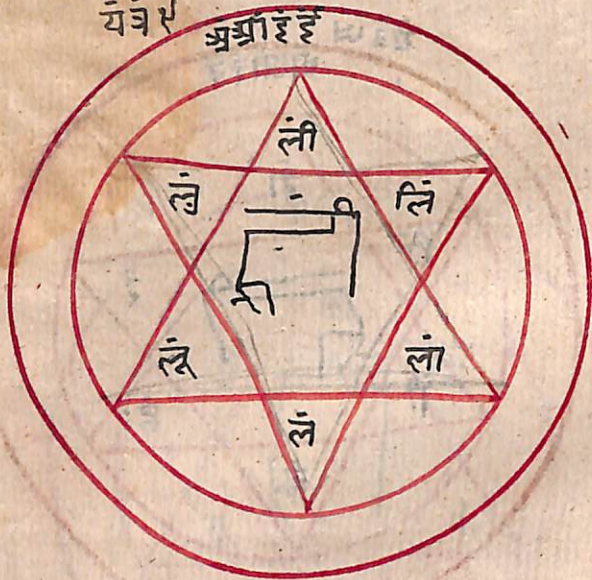 यंत्र१
अंआंइंईं
लीं
लुं लिं
लं
लूं लां
लं